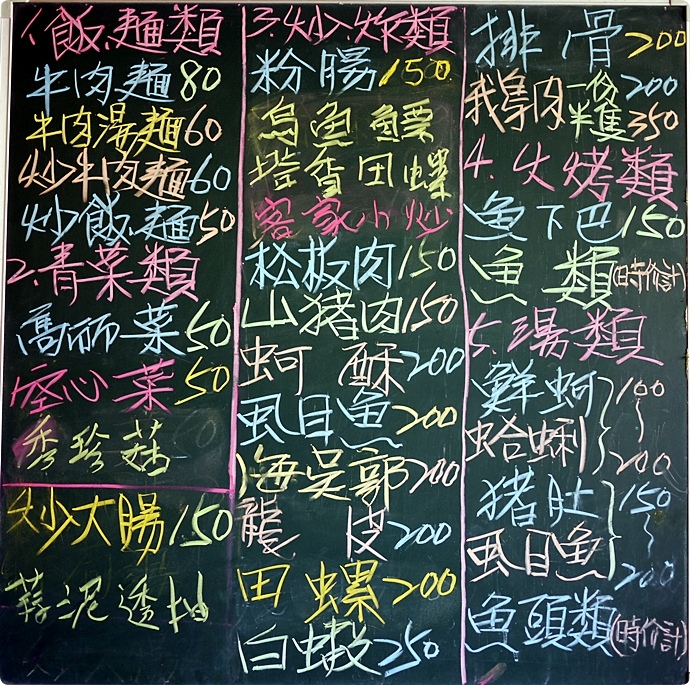 1.飯.麵類
牛肉麵80
牛肉湯麵60
炒牛肉麵60
炒飯.麵50
2.青菜類
高丽菜50
空心菜50
秀珍菇
炒大腸150
蒜泥透抽
3.炒.炸類
粉腸150
烏魚鰾
塔香田螺
客家小炒
松板肉150
山猪肉150
蚵酥200
虱目魚200
海吴郭200
龍皮200
田螺200
白蝦250
排骨200
我鳥肉一份200
半隻350
4.火烤類
魚下巴150
魚類(時价計)
5.湯類
鮮蚵 100
蛤蜊 ~200
猪肚 150
虱目魚 ~200
魚頭類(時价計)